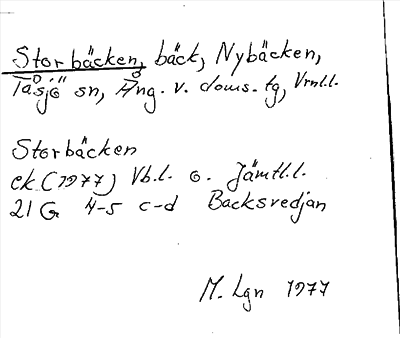 Storbäcken, bäck, Nybäcken,
Tåsjö sn, Ång. v. doms. tg, Vrnl.l.
Storbäcken
ek (1977) Vb.l. o. Jämtl.l.
21 G 4-5 c-d Backsvedjan
M. Lgn 1977